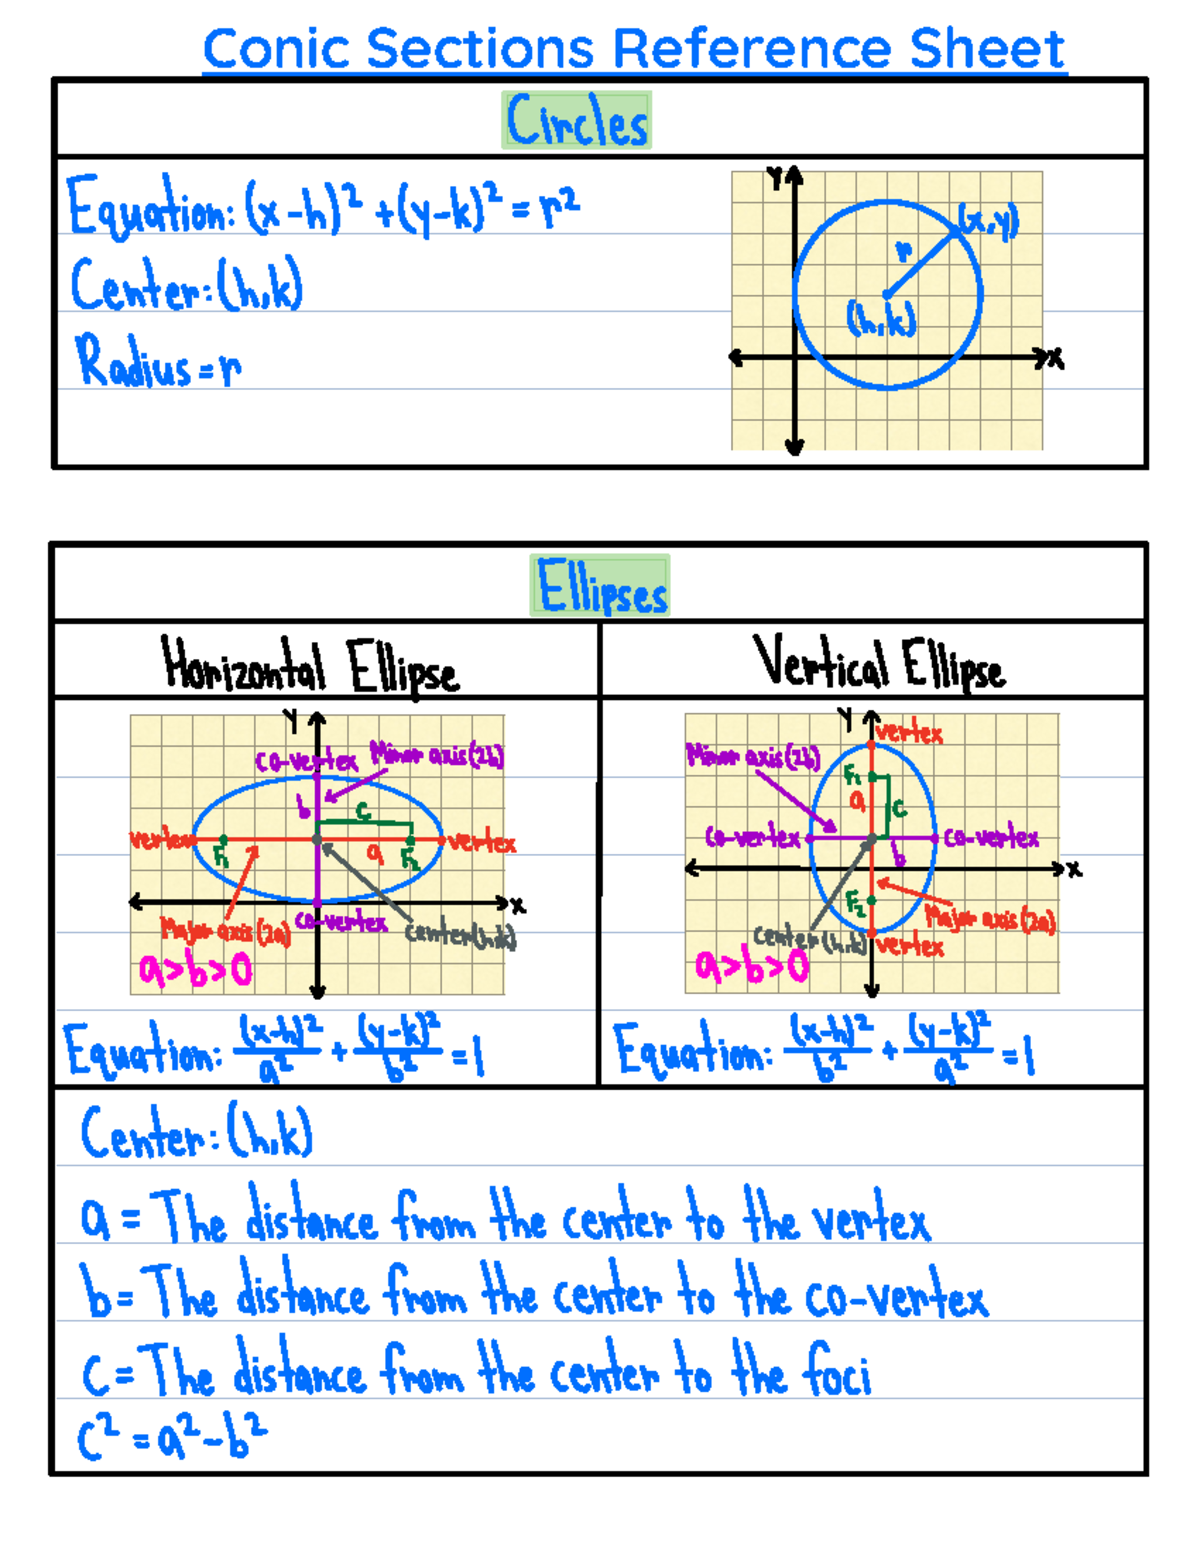 Conic Sections Reference Sheet
Circles
Equation: (x-h)² + (y-k)² = r²
Center: (h,k)
Radius = r
Y
(x,y)
r
(h,k)
X
Ellipses
Horizontal Ellipse
Vertical Ellipse
Y
co-vertex
Minor axis (2b)
b
c
vertex
F₁
a
F₂
vertex
x
Major axis (2a)
co-vertex
center (h,k)
a>b>0
Equation: (x-h)²/a² + (y-k)²/b² = 1
Y
vertex
Minor axis (2b)
F₁
a
c
co-vertex
b
co-vertex
x
F₂
Major axis (2a)
center (h,k)
vertex
a>b>0
Equation: (x-h)²/b² + (y-k)²/a² = 1
Center: (h,k)
a = The distance from the center to the vertex
b = The distance from the center to the co-vertex
c = The distance from the center to the foci
c² = a² - b²